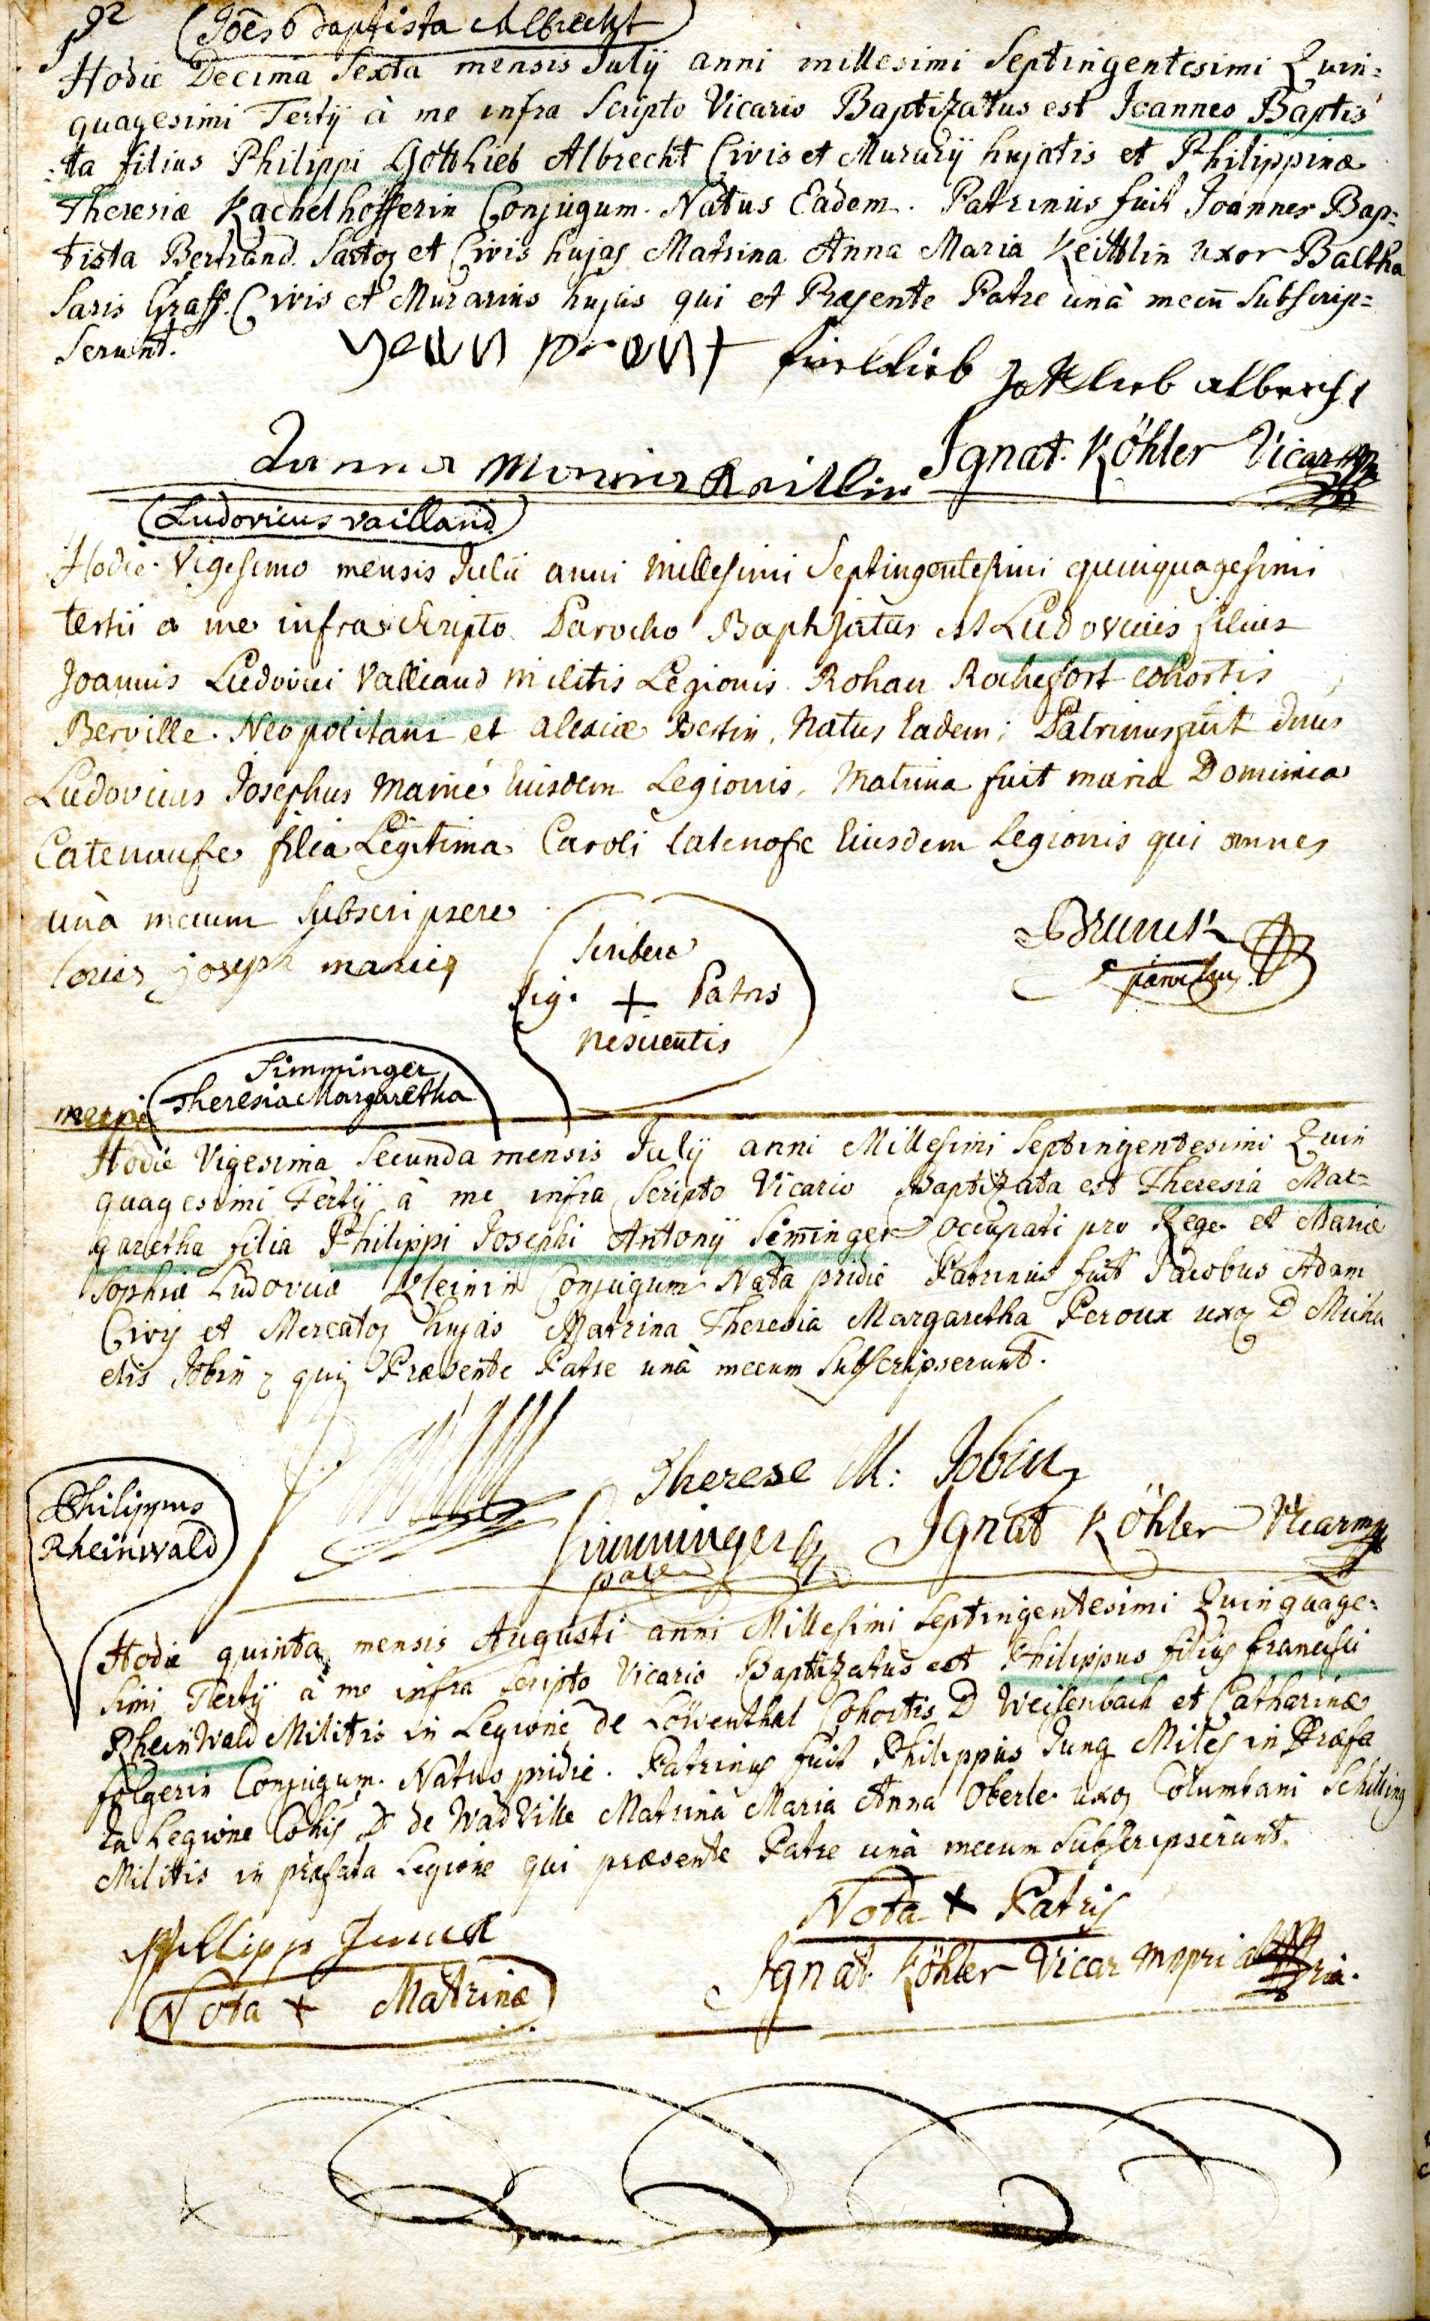 92
Joës Baptista Albrecht
Hodie Decima Sexta mensis Julÿ anni millesimi Septingentesimi Quin=
quagesimi Tertÿ à me infra Scripto Vicario Baptizatus est Joannes Baptis
=ta filius Philippi Gottlieb Albrecht Civis et Murarÿ hujatis et Philippinæ
Theresiæ Kachelhöfferin Conjugum. Natus Eadem. Patrinus fuit Joannes Bap=
tista Bertrand Sartor et Civis hujas Matrina Anna Maria Keittlin uxor Baltha
Saris Graff Civis et Murarius hujus qui et Præsente Patre unà mecũ Subscrip=
Serunt.
Gottlieb albrecht
Anna Maria Keitlin
Ignat. Köhler Vicar
Ludovicus vailland
Hodie Vigesimo mensis Julii anni Millesimi Septingentesimi quinquagesimi
tertii a me infra scripto Parocho Baptisatus est Ludovicus filius
Joannis Ludovici Valliand militis Legionis Rohan Rochefort cohortis
Berville Neopolitani et alexiæ Bertin, Natus Eadem; Patrinus fuit dnus
Ludovicus Josephus Marié Eiusdem Legionis, Matrina fuit maria Dominica
Catenaufe filia Legitima Caroli Catenofe Eiusdem Legionis qui omnes
unà mecum subscripsere
Louis joseph marié
Scribere
Sig. + Patris
nescientis
Brunck
parochus
Simminger
Theresia Margaretha
Hodie Vigesima Secunda mensis Julÿ anni Millesimi Septingentesimi Quin
quagesimi Tertÿ à me infra Scripto Vicario Baptizata est Theresia Mar=
garetha filia Philippi Josephi Antonÿ Siminger occupati pro Rege et Mariæ
Sophiæ Ludovicæ Kleinin Conjugum Nata pridie Patrinus fuit Jacobus Adam
Civis et Mercator hujas Matrina Theresia Margaretha Peroux uxor D Micha
elis Jobin qui Præsente Patre unà mecum Subscripserunt.
Therese M: Jobin
Simminger
pater
Ignat Köhler Vicar mp
Philippus
Rheinwald
Hodie quinta mensis Augusti anni Millesimi Septingentesimi Quinquage=
simi Tertÿ à me infra Scripto Vicario Baptizatus est Philippus filius francisci
RheinWald Militis in Legione de Löwenthal Cohortis D Weisenbach et Catharinæ
folgerin Conjugum. Natus pridie. Patrinus fuit Philippus Jung Miles in Præfa
ta Legione Cohis D de WadVille Matrina Maria Anna Oberle uxor Columbani Schilling
Militis in præfata Legione qui præsente Patre unà mecum Subscripserunt.
Nota + Patris
Phillipp Junck
Nota + Matrinæ
Ignat. Köhler Vicar mppria